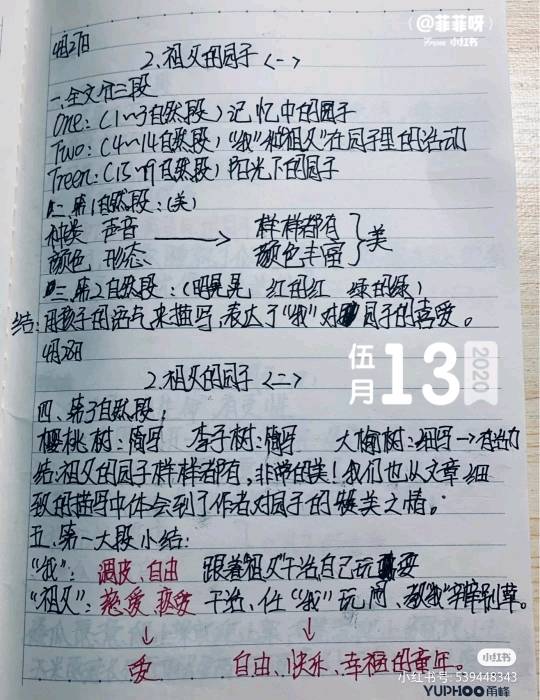 (@菲菲呀)
小红书
4月27日
2.祖父的园子<一>
一.全文分三段
One:(1~3自然段)记忆中的园子
Two:(4~14自然段)“我”和“祖父”在园子里的活动
Treen:(15~19自然段)阳光下的园子
二.第1自然段:(美)
种类 声音 → 样样都有
颜色 形态 颜色丰富 } 美
三.第2自然段:(明晃晃 红的红 绿的绿)
结:用孩子的语气来描写,表达了“我”对园子的喜爱。
4月28日
伍月13 2020
2.祖父的园子<二>
四.第3自然段:
樱桃树:简写 李子树:简写 大榆树:细写→有活力
结:祖父的园子样样都有,非常的美!我们也从文章细
致的描写中体会到了作者对园子的赞美之情。
五.第一大段小结:
“我”: 调皮、自由 跟着“祖父”干活,自己玩耍
“祖父”:慈爱 干活、任“我”玩闹、教“我”辨别草。
↓ ↓
爱 自由、快乐、幸福的童年。
小红书
小红书号:539448343
YUPHOO甬峰